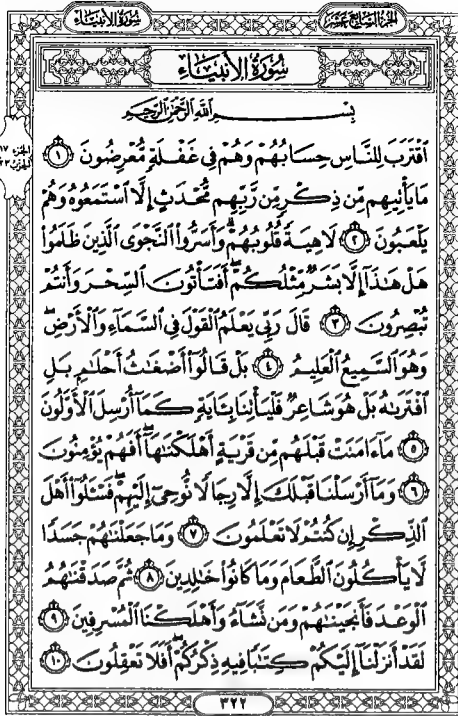 سورة الأنبياء
الجزء السابع عشر
سُورَةُ الأَنبِيَاءِ
بِسْمِ اللَّهِ الرَّحْمَٰنِ الرَّحِيمِ
ٱقۡتَرَبَ لِلنَّاسِ حِسَابُهُمۡ وَهُمۡ فِي غَفۡلَةٖ مُّعۡرِضُونَ ١
مَا يَأۡتِيهِم مِّن ذِكۡرٖ مِّن رَّبِّهِم مُّحۡدَثٍ إِلَّا ٱسۡتَمَعُوهُ وَهُمۡ
يَلۡعَبُونَ ٢ لَاهِيَةٗ قُلُوبُهُمۡۗ وَأَسَرُّواْ ٱلنَّجۡوَى ٱلَّذِينَ ظَلَمُواْ
هَلۡ هَٰذَآ إِلَّا بَشَرٞ مِّثۡلُكُمۡۖ أَفَتَأۡتُونَ ٱلسِّحۡرَ وَأَنتُمۡ
تُبۡصِرُونَ ٣ قَالَ رَبِّي يَعۡلَمُ ٱلۡقَوۡلَ فِي ٱلسَّمَآءِ وَٱلۡأَرۡضِۖ
وَهُوَ ٱلسَّمِيعُ ٱلۡعَلِيمُ ٤ بَلۡ قَالُوٓاْ أَضۡغَٰثُ أَحۡلَٰمِۭ بَلِ
ٱفۡتَرَىٰهُ بَلۡ هُوَ شَاعِرٞ فَلۡيَأۡتِنَا بِـَٔايَةٖ كَمَآ أُرۡسِلَ ٱلۡأَوَّلُونَ
٥ مَآ ءَامَنَتۡ قَبۡلَهُم مِّن قَرۡيَةٍ أَهۡلَكۡنَٰهَآۖ أَفَهُمۡ يُؤۡمِنُونَ
٦ وَمَآ أَرۡسَلۡنَا قَبۡلَكَ إِلَّا رِجَالٗا نُّوحِيٓ إِلَيۡهِمۡۖ فَسۡـَٔلُوٓاْ أَهۡلَ
ٱلذِّكۡرِ إِن كُنتُمۡ لَا تَعۡلَمُونَ ٧ وَمَا جَعَلۡنَٰهُمۡ جَسَدٗا
لَّا يَأۡكُلُونَ ٱلطَّعَامَ وَمَا كَانُواْ خَٰلِدِينَ ٨ ثُمَّ صَدَقۡنَٰهُمُ
ٱلۡوَعۡدَ فَأَنجَيۡنَٰهُمۡ وَمَن نَّشَآءُ وَأَهۡلَكۡنَا ٱلۡمُسۡرِفِينَ ٩
لَقَدۡ أَنزَلۡنَآ إِلَيۡكُمۡ كِتَٰبٗا فِيهِ ذِكۡرُكُمۡۚ أَفَلَا تَعۡقِلُونَ ١٠
٣٢٢